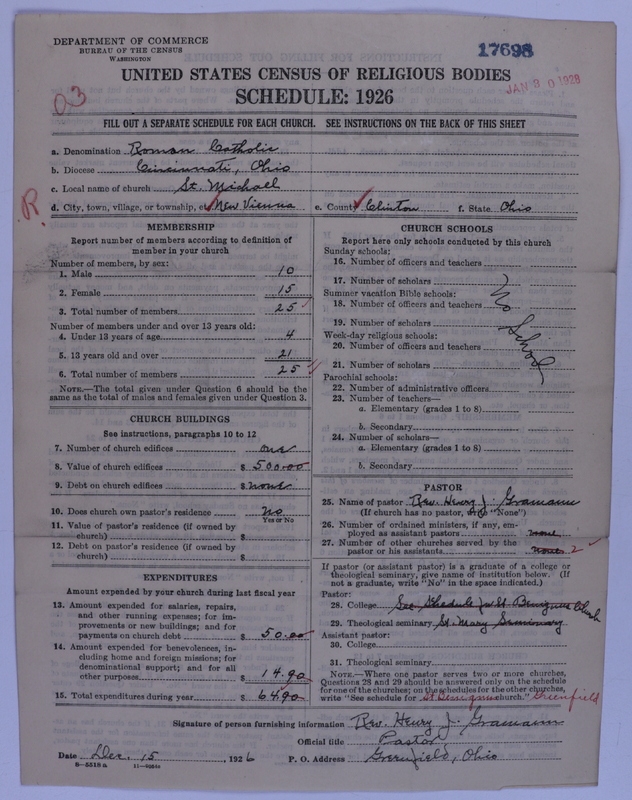 DEPARTMENT OF COMMERCE
BUREAU OF THE CENSUS
WASHINGTON
17698
JAN 30 1928
UNITED STATES CENSUS OF RELIGIOUS BODIES
SCHEDULE: 1926
03
FILL OUT A SEPARATE SCHEDULE FOR EACH CHURCH. SEE INSTRUCTIONS ON THE BACK OF THIS SHEET
a. Denomination Roman Catholic
b. Diocese Cincinnati, Ohio
c. Local name of church St. Michael
R. d. City, town, village, or township, etc. New Vienna e. County Clinton f. State Ohio
MEMBERSHIP
Report number of members according to definition of
member in your church
Number of members, by sex:
1. Male 10
2. Female 15
3. Total number of members 25
Number of members under and over 13 years old:
4. Under 13 years of age 4
5. 13 years old and over 21
6. Total number of members 25
NOTE.—The total given under Question 6 should be the
same as the total of males and females given under Question 3.
CHURCH BUILDINGS
See instructions, paragraphs 10 to 12
7. Number of church edifices one
8. Value of church edifices $ 500.00
9. Debt on church edifices $ none
10. Does church own pastor's residence No
Yes or No
11. Value of pastor's residence (if owned by
church) $
12. Debt on pastor's residence (if owned by
church) $
EXPENDITURES
Amount expended by your church during last fiscal year
13. Amount expended for salaries, repairs,
and other running expenses; for im-
provements or new buildings; and for
payments on church debt $ 50.00
14. Amount expended for benevolences, in-
cluding home and foreign missions; for
denominational support; and for all
other purposes $ 14.90
15. Total expenditures during year $ 64.90
CHURCH SCHOOLS
Report here only schools conducted by this church
Sunday schools:
16. Number of officers and teachers
17. Number of scholars
Summer vacation Bible schools:
18. Number of officers and teachers
19. Number of scholars
No School
Week-day religious schools:
20. Number of officers and teachers
21. Number of scholars
Parochial schools:
22. Number of administrative officers
23. Number of teachers—
a. Elementary (grades 1 to 8)
b. Secondary
24. Number of scholars—
a. Elementary (grades 1 to 8)
b. Secondary
PASTOR
25. Name of pastor Rev. Henry J. Gramann
(If church has no pastor, write "None")
26. Number of ordained ministers, if any, em-
ployed as assistant pastors none
27. Number of other churches served by the
pastor or his assistants none 2
If pastor (or assistant pastor) is a graduate of a college or
theological seminary, give name of institution below. (If
not a graduate, write "No" in the space indicated.)
Pastor:
28. College See Schedule for St. Benignus Church
29. Theological seminary St. Mary Seminary
Assistant pastor:
30. College
31. Theological seminary
NOTE.—Where one pastor serves two or more churches,
Questions 28 and 29 should be answered only on the schedule
for one of the churches; on the schedules for the other churches,
write "See schedule for St Benignus church." Greenfield
Signature of person furnishing information Rev. Henry J. Gramann
Official title Pastor
Date Dec. 15, 1926 P. O. Address Greenfield, Ohio
8-5518 a